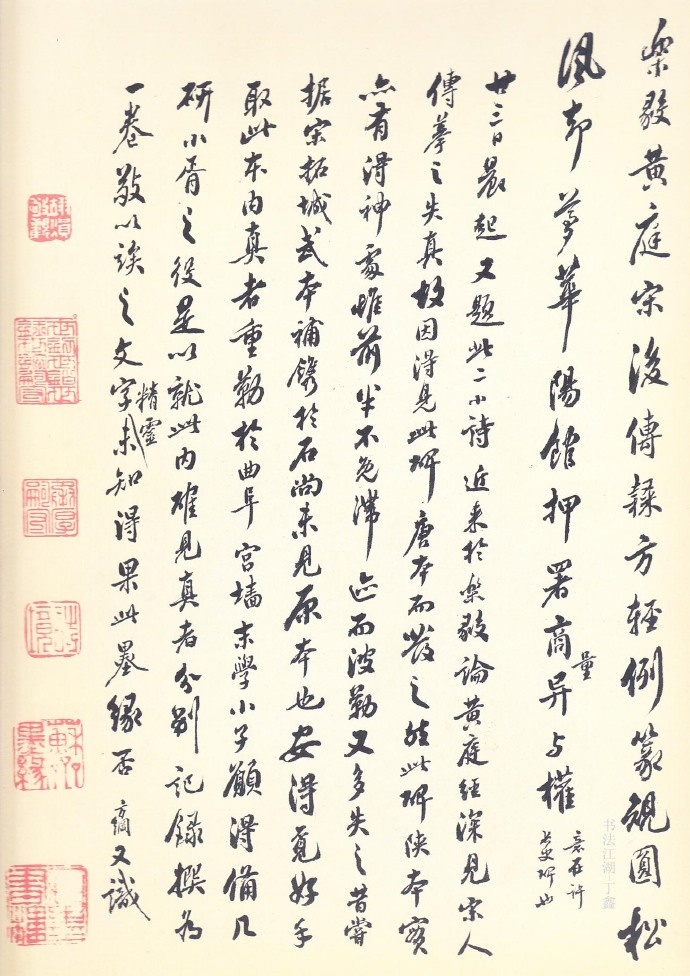 樂毅黃庭宋後傳隸方輕例篆規圓松
風却夢華陽館押署商量异与權
意在許
長史碑也
廿三日晨起又題此二小詩近来於樂毅論黃庭經深見宋人
傳摹之失真故因得見此碑唐本而發之然此碑陝本實
亦有得神處惟前半不免滯迹而波勒又多失之昔嘗
据宋拓城武本補鐫於石尚未見原本也安得覓好手
取此本内真者重勒於曲阜宮墻末學小子願得備几
研小胥之役是以就此内確見真者分別記錄撰為
一卷敬以竢之文字精靈未知得果此墨緣否方綱又識
书法江湖—丁鑫